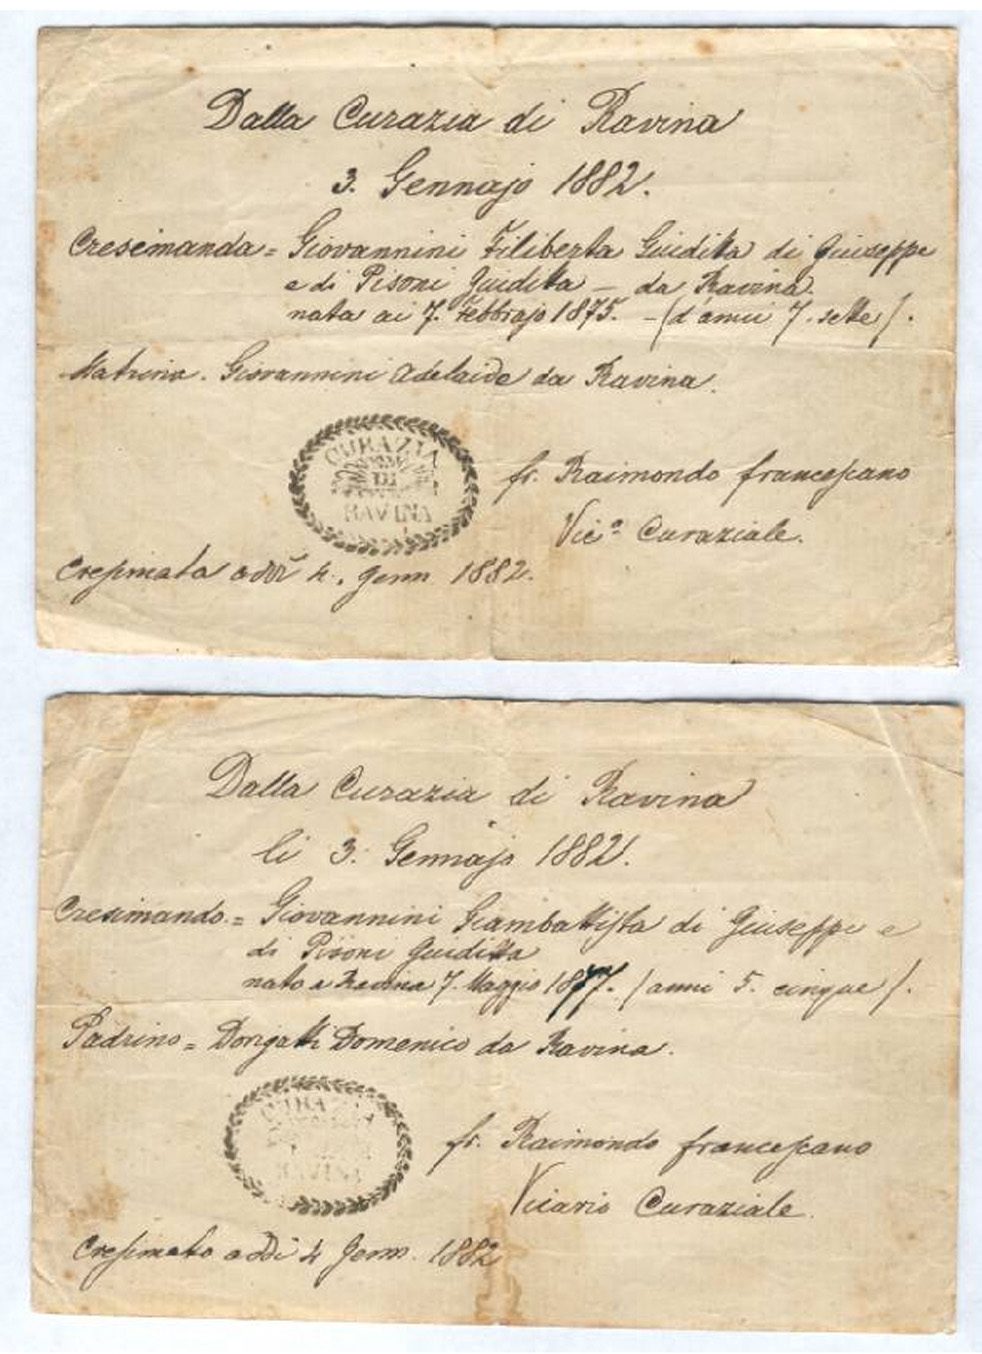 Dalla Curazia di Ravina
3. Gennajo 1882.
Cresimanda = Giovannini Filiberta Guiditta di Giuseppe
e di Pisoni Guiditta – da Ravina.
nata ai 7. Febbrajo 1875. – (d'anni 7. sette).
Matrina. Giovannini Adelaide da Ravina.
CURAZIA
DI
RAVINA
fr. Raimondo francescano
Vic.º Curaziale.
Cresimata addì 4. Genn. 1882.
Dalla Curazia di Ravina
li 3. Gennajo 1882.
Cresimando. = Giovannini Giambattista di Giuseppe e
di Pisoni Guiditta
nato a Ravina 7. Maggio 1877. (anni 5. cinque).
Padrino = Dorigatti Domenico da Ravina.
CURAZIA
RAVINA
fr. Raimondo francescano
Vicario Curaziale.
Cresimato addì 4 Genn. 1882